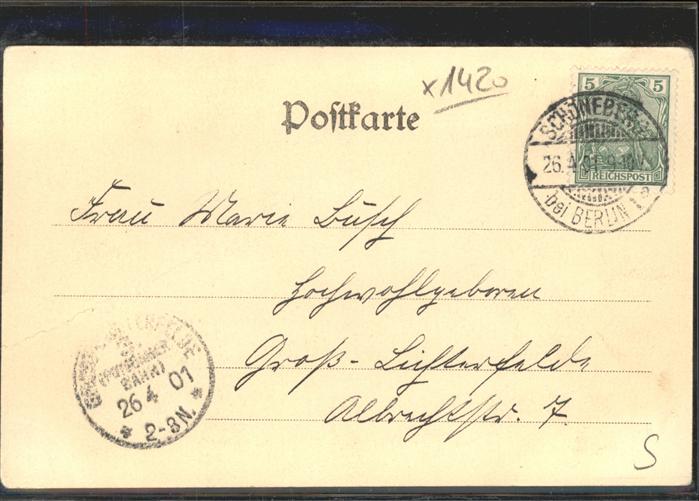 x1420
5 5
REICHSPOST
Postkarte
SCHÖNEBERG
26.4.01 9-10V
bei BERLIN 1 a
Frau Marie Busch
Hochwohlgeboren
Groß-Lichterfelde
Albrechtstr. 7.
GROSS-LICHTERFELDE
BAHN)
26 4 01
* 2-3N. *
S